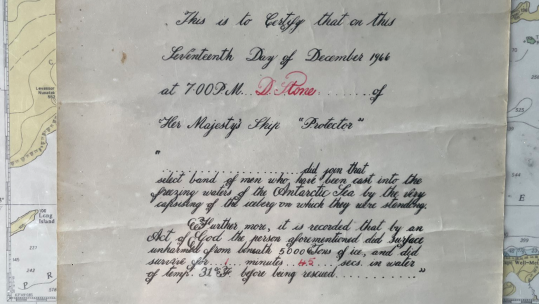 This is to Certify that on this
Seventeenth Day of December 1966
at 7:00 P.M. D. Stone ........ of
Her Majesty's Ship "Protector"
"
........................ did join that
select band of men who have been cast into the
freezing waters of the Antarctic Sea by the very
capsizing of the iceberg on which they were standing.
Further more, it is recorded that by an
Act of God the person aforementioned did surface
unharmed from beneath 5000 tons of ice, and did
survive for 1 minutes secs. in water
of temp. 31°F. before being rescued ............"
Long
Island